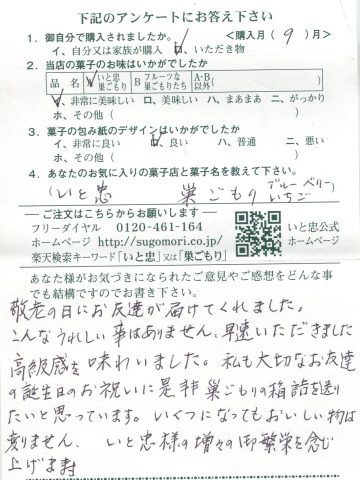 下記のアンケートにお答え下さい
1．御自分で購入されましたか。 <購入月( 9 )月>
イ、自分又は家族が購入 ロ、いただき物
2．当店の菓子のお味はいかがでしたか
品名 A いと忠巣ごもり B フルーツな巣ごもりたち A・B以外( )
イ、非常に美味しい ロ、美味しい ハ、まあまあ ニ、がっかり
ホ、その他( )
3．菓子の包み紙のデザインはいかがでしたか
イ、非常に良い ロ、良い ハ、普通 ニ、悪い
ホ、その他( )
4．あなたのお気に入りの菓子店と菓子名を教えて下さい。
(いと忠 巣ごもり ブルーベリー いちご)
―― ご注文はこちらからお願いします ――
フリーダイヤル 0120-461-164
ホームページ http://sugomori.co.jp/
楽天検索キーワード「いと忠」又は「巣ごもり」
いと忠公式
ホームページ
あなた様がお気づきになられたご意見やご感想をどんな事
でも結構ですのでお書き下さい。
敬老の日にお友達が届けてくれました。
こんなうれしい事はありません、早速いただきました
高級感を味わいました。私も大切なお友達
の誕生日のお祝いに是非巣ごもりの箱詰を送り
たいと思っています。いくつになってもおいしい物は
変りません、いと忠様の増々の御繁栄を念じ
上げます